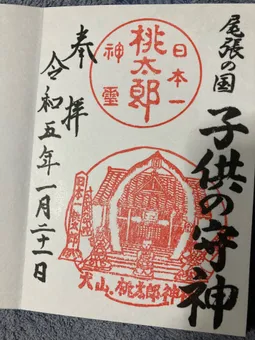 尾張の国
子供の守神
日本一
桃太郎
神霊
日本一桃太郎
犬山・桃太郎神
奉拝
令和五年一月二十一日